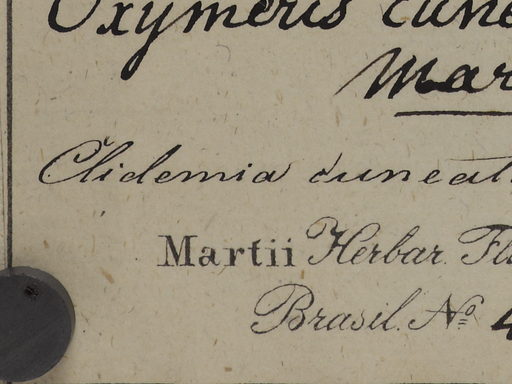 Oxymeris cune
Mar
Clidemia cuneat
Martii Herbar. Fl
Brasil. No. 4